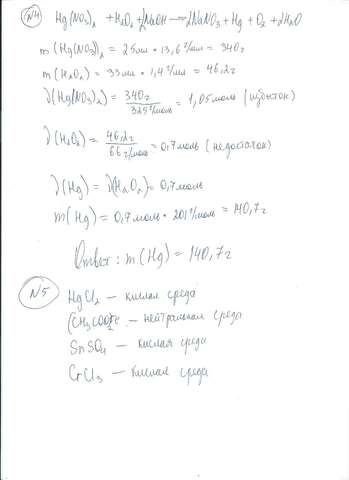 N4 Hg(NO3)2 + H2O2 + 2NaOH → 2NaNO3 + Hg + O2 + 2H2O
m(Hg(NO3)2) = 25мл · 13,6 г/мл = 340г
m(H2O2) = 33мл · 1,4 г/мл = 46,2г
ν(Hg(NO3)2) = 340г / 325 г/моль = 1,05 моль (избыток)
ν(H2O2) = 46,2г / 66 г/моль = 0,7 моль (недостаток)
ν(Hg) = ν(H2O2) = 0,7 моль
m(Hg) = 0,7 моль · 201 г/моль = 140,7 г
Ответ: m(Hg) = 140,7г
N5
HgCl2 — кислая среда
(CH3COO)2 — нейтральная среда
SnSO4 — кислая среда
CrCl3 — кислая среда